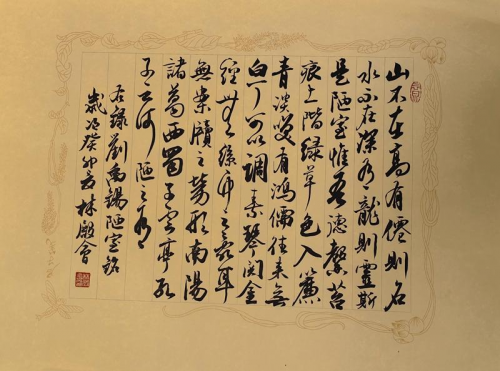 山不在高有僊則名
水不在深有龍則靈斯
是陋室惟吾德馨苔
痕上階綠草色入簾
青談笑有鴻儒往來無
白丁可以調素琴閱金
經無絲竹之亂耳
無案牘之勞形南陽
諸葛西蜀子雲亭孔
子云何陋之有
右錄劉禹錫陋室銘
歲次癸卯 林 會